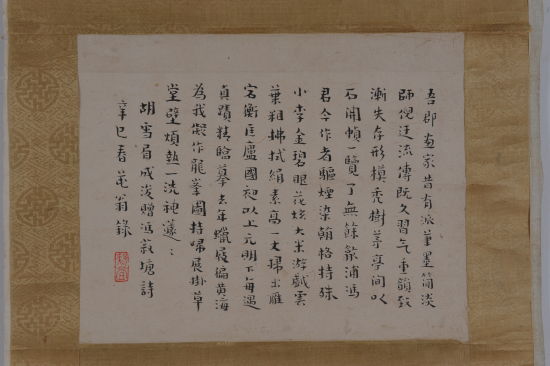 吾郡畫家昔有派筆墨簡淡
師倪迂流傳既久習氣重韻致
漸失存形模禿樹茅亭間以
石開幀一覽了無餘歙浦馮
君今作者驅煙染翰格特殊
小李金碧眼花炫大米游戲雲
葉粗拂拭絹素高一丈掃出雁
宕衡匡廬國初以上元明下每遇
真蹟精臨摹去年蠟屐徧黃海
為我擬作龍峯圖持歸展掛草
堂壁煩熱一洗神蘧〻
胡雪眉成浚贈馮菽塘詩
辛巳春翁錄